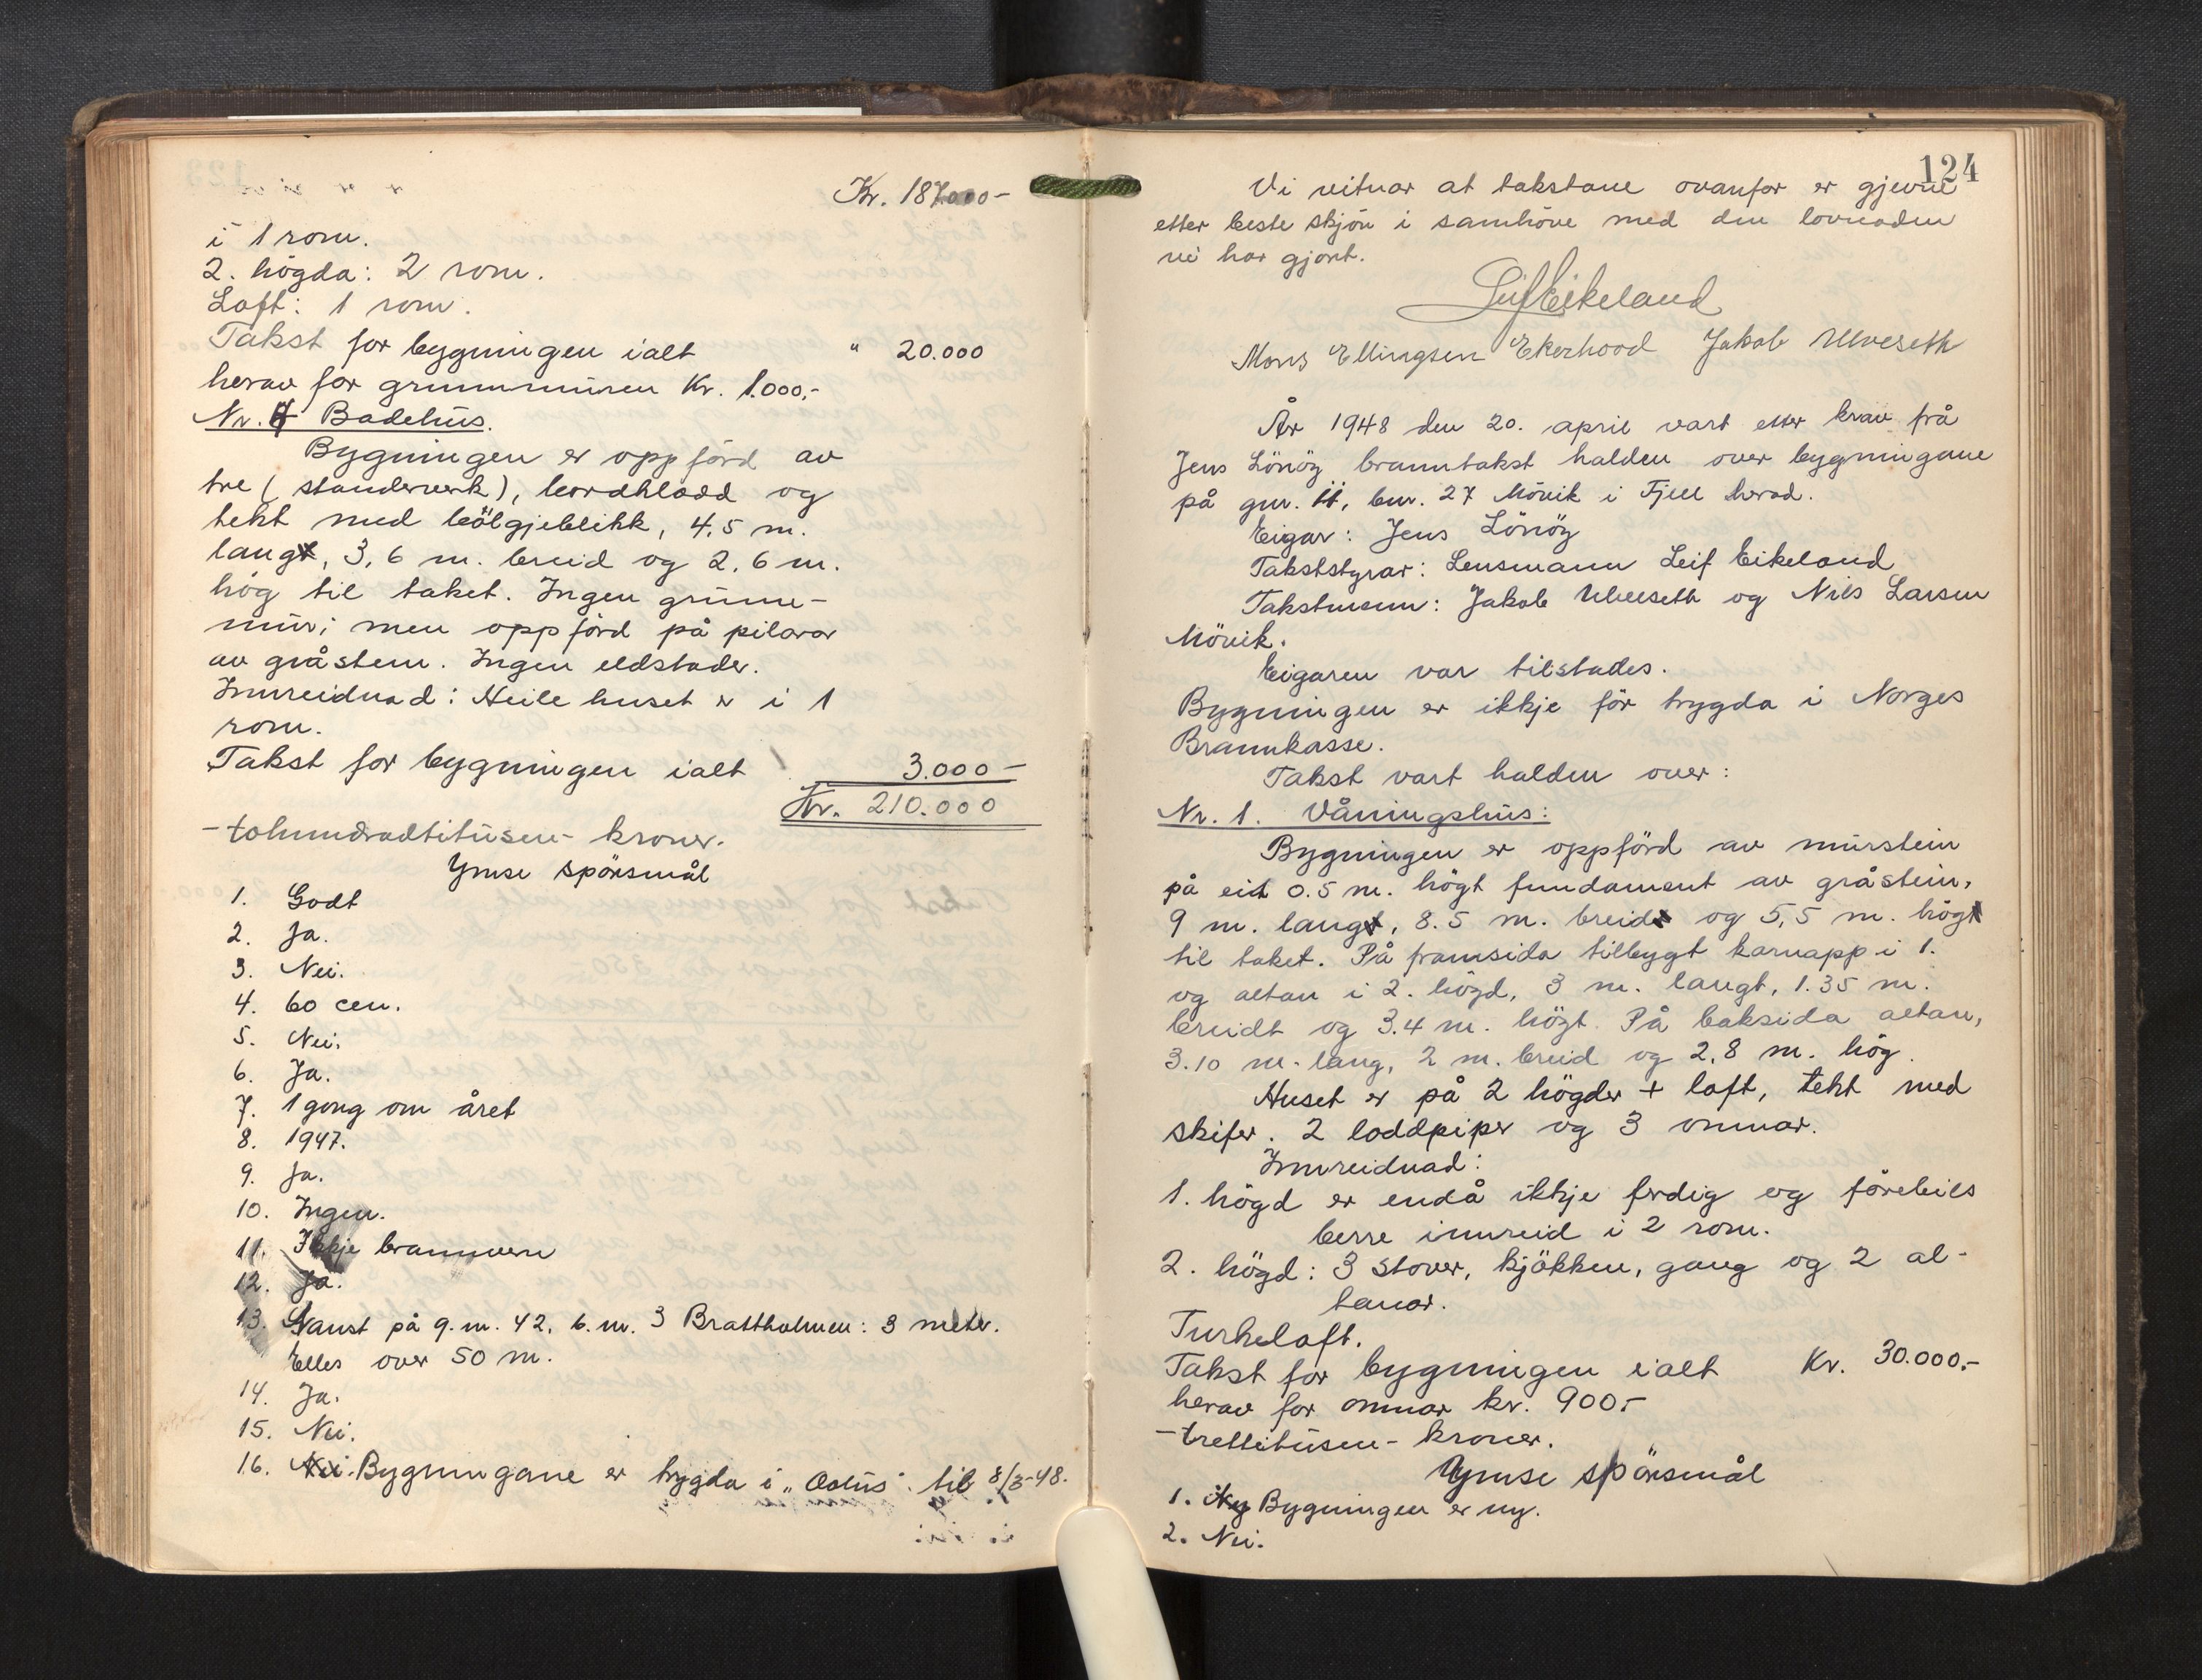 Kr. 187.000-
i 1 rom.
2. högda: 2 rom.
Loft: 1 rom.
Takst for bygningen ialt " 20.000
herav for grunnmuren Kr. 1.000,-
Nr. 4 Badehus.
Bygningen er oppförd av
tre (standerverk), bordkledd og
tekt med bölgjeblikk, 4,5 m.
lang, 3,6 m. breid og 2,6 m.
hög til taket. Ingen grunn-
mur; men oppförd på pilarar
av gråstein. Ingen eldstader.
Innreidnad: Heile huset er i 1
rom.
Takst for bygningen ialt 3.000-
Kr. 210.000
-tohundradtitusen- kroner.
Ymse spörsmål
1. Godt
2. Ja.
3. Nei.
4. 60 cm.
5. Nei.
6. Ja.
7. 1 gong om året
8. 1947.
9. Ja.
10. Ingen.
11. Ikkje brannvern
12. Ja.
13. Naust på g.nr. 42, b.nr. 3 Brattholmen: 3 meter.
Elles over 50 m.
14. Ja.
15. Nei.
16. Nei. Bygningane er trygda i til 8/3-48.
124
Vi vitnar at takstane ovanfor er gjevne
etter beste skjön i samhöve med den lovnaden
vi har gjort.
Leif Eikeland
Mons Ellingsen Ekerhovd Jakob Ulveseth
År 1948 den 20. april vart etter krav frå
Jens Lönöy branntakst halden over bygningane
på gnr. 11, bnr. 27 Mövik i Fjell herad.
Eigar: Jens Lönöy
Takststyrar: Lensmann Leif Eikeland
Takstmenn: Jakob Ulveseth og Nils Larsen
Mövik.
Eigaren var tilstades.
Bygningen er ikkje för trygda i Norges
Brannkasse.
Takst vart halden over:
Nr. 1. Våningshus:
Bygningen er oppförd av murstein
på eit 0.5 m. högt fundament av gråstein,
9 m. lang, 8.5 m. breid og 5,5 m. hög
til taket. På framsida tilbygt karnapp i 1.
og altan i 2. högd, 3 m. langt, 1.35 m.
breidt og 3.4 m. högt. På baksida altan,
3.10 m. lang, 2 m. breid og 2,8 m. hög.
Huset er på 2 högder + loft, tekt med
skifer. 2 loddpiper og 3 omnar.
Innreidnad:
1. högd er endå ikkje ferdig og förebils
berre innreid i 2 rom.
2. högd: 3 stover, kjökken, gang og 2 al-
tanar.
Turkeloft.
Takst for bygningen ialt Kr. 30.000.-
herav for omnar kr. 900.-
-trettitusen- kroner.
Ymse spörsmål
1. Ny Bygningen er ny.
2. Nei.